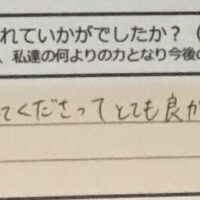 れていかがでしたか？（
、私達の何よりの力となり今後の
てくださってとても良か